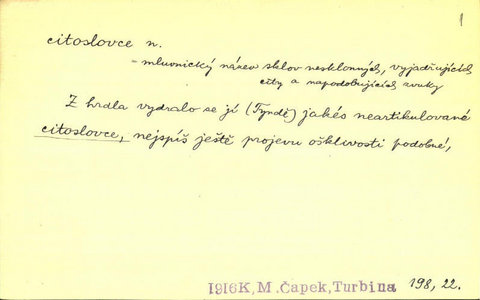 1
citoslovce n.
- mluvnický název sklov nesklonných, vyjadřujících
city a napodobujících zvuky
Z hrdla vydralo se jí (Tyndě) jakés neartikulované
citoslovce, nejspíš ještě projevu ošklivosti podobné,
1916K, M. Čapek, Turbina 198, 22.